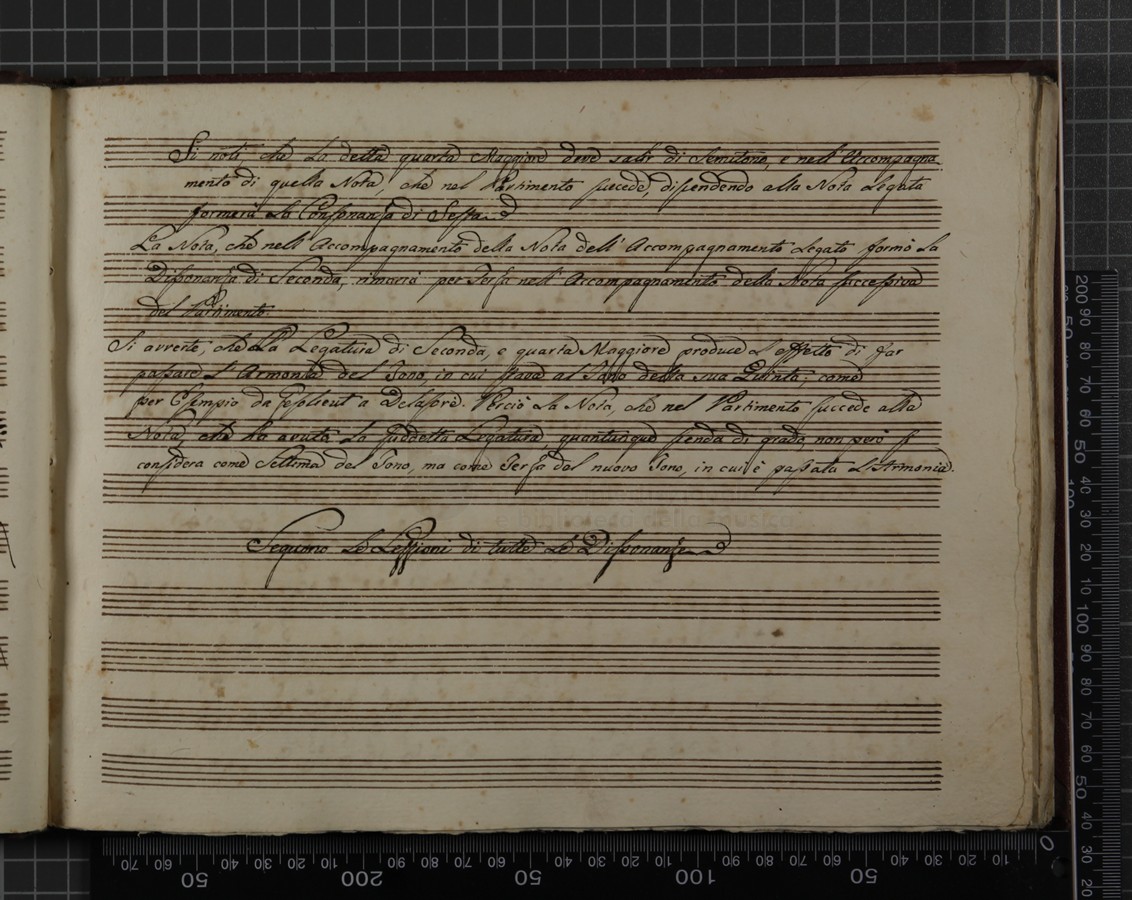 Si noti, che la detta quarta Maggiore deve salir di Semitono, e nell'Accompagna
mento di quella Nota, che nel Partimento succede, discendendo alla Nota legata
formerà la Consonanza di Sesta.
La Nota, che nell'Accompagnamento della Nota dell'Accompagnamento legato formò la
Dissonanza di Seconda, rimarrà per Terza nell'Accompagnamento della Nota successiva
del Partimento.
Si avverte, che la Legatura di Seconda, e quarta Maggiore produce l'effetto di far
passare l'Armonia del Tono, in cui stava al Tono della sua Quinta; come
per Esempio da Gesolreut a Delasorè. Perciò la Nota, che nel Partimento succede alla
Nota, che ha avuta la suddetta Legatura, quantunque scenda di grado, non però si
considera come Settima del Tono, ma come Terza del nuovo Tono, in cui è passata l'Armonia.
e biblioteca della musica
Seguono le Lezzioni di tutte le Dissonanze
200 90 80 70 60 50 40 30 20 10 100 90 80 70 60 50 40 30 20
70 60 50 40 30 20 10 200 90 80 70 60 50 40 30 20 10 100 90 80 70 60 50 40 30 20 10 0